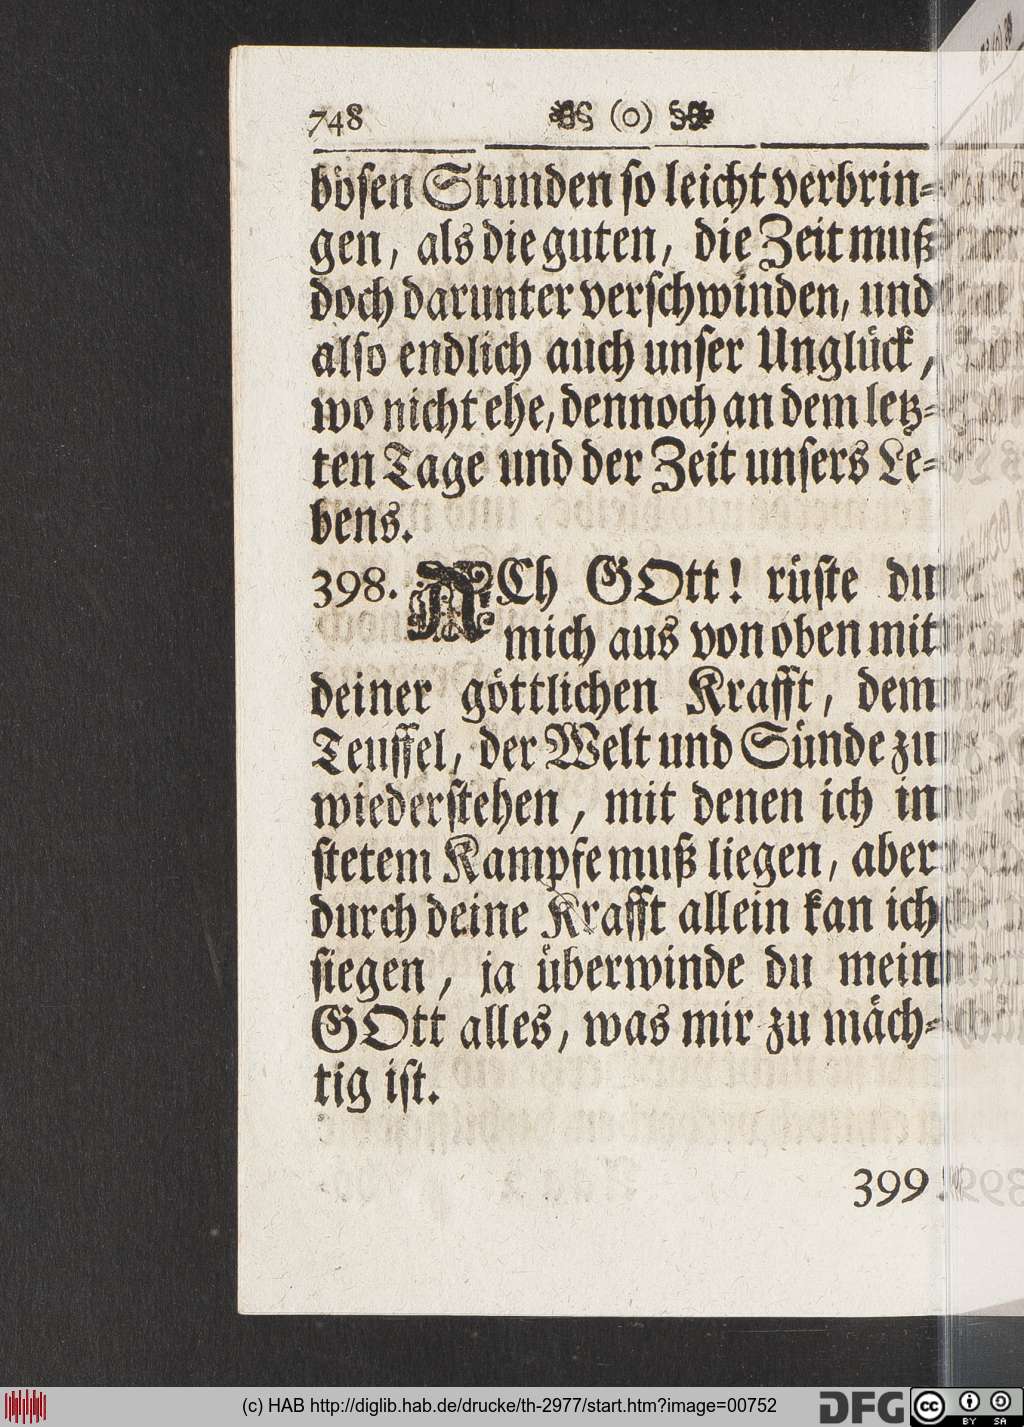 748 (o)
bösen Stunden so leicht verbrin-
gen, als die guten, die Zeit muß
doch darunter verschwinden, und
also endlich auch unser Unglück,
wo nicht ehe, dennoch an dem letz-
ten Tage und der Zeit unsers Le-
bens.
398. ACh GOtt! rüste du
mich aus von oben mit
deiner göttlichen Krafft, dem
Teuffel, der Welt und Sünde zu
wiederstehen, mit denen ich in
stetem Kampfe muß liegen, aber
durch deine Krafft allein kan ich
siegen, ja überwinde du mein
GOtt alles, was mir zu mäch-
tig ist.
399.
(c) HAB http://diglib.hab.de/drucke/th-2977/start.htm?image=00752
DFG
cc BY SA